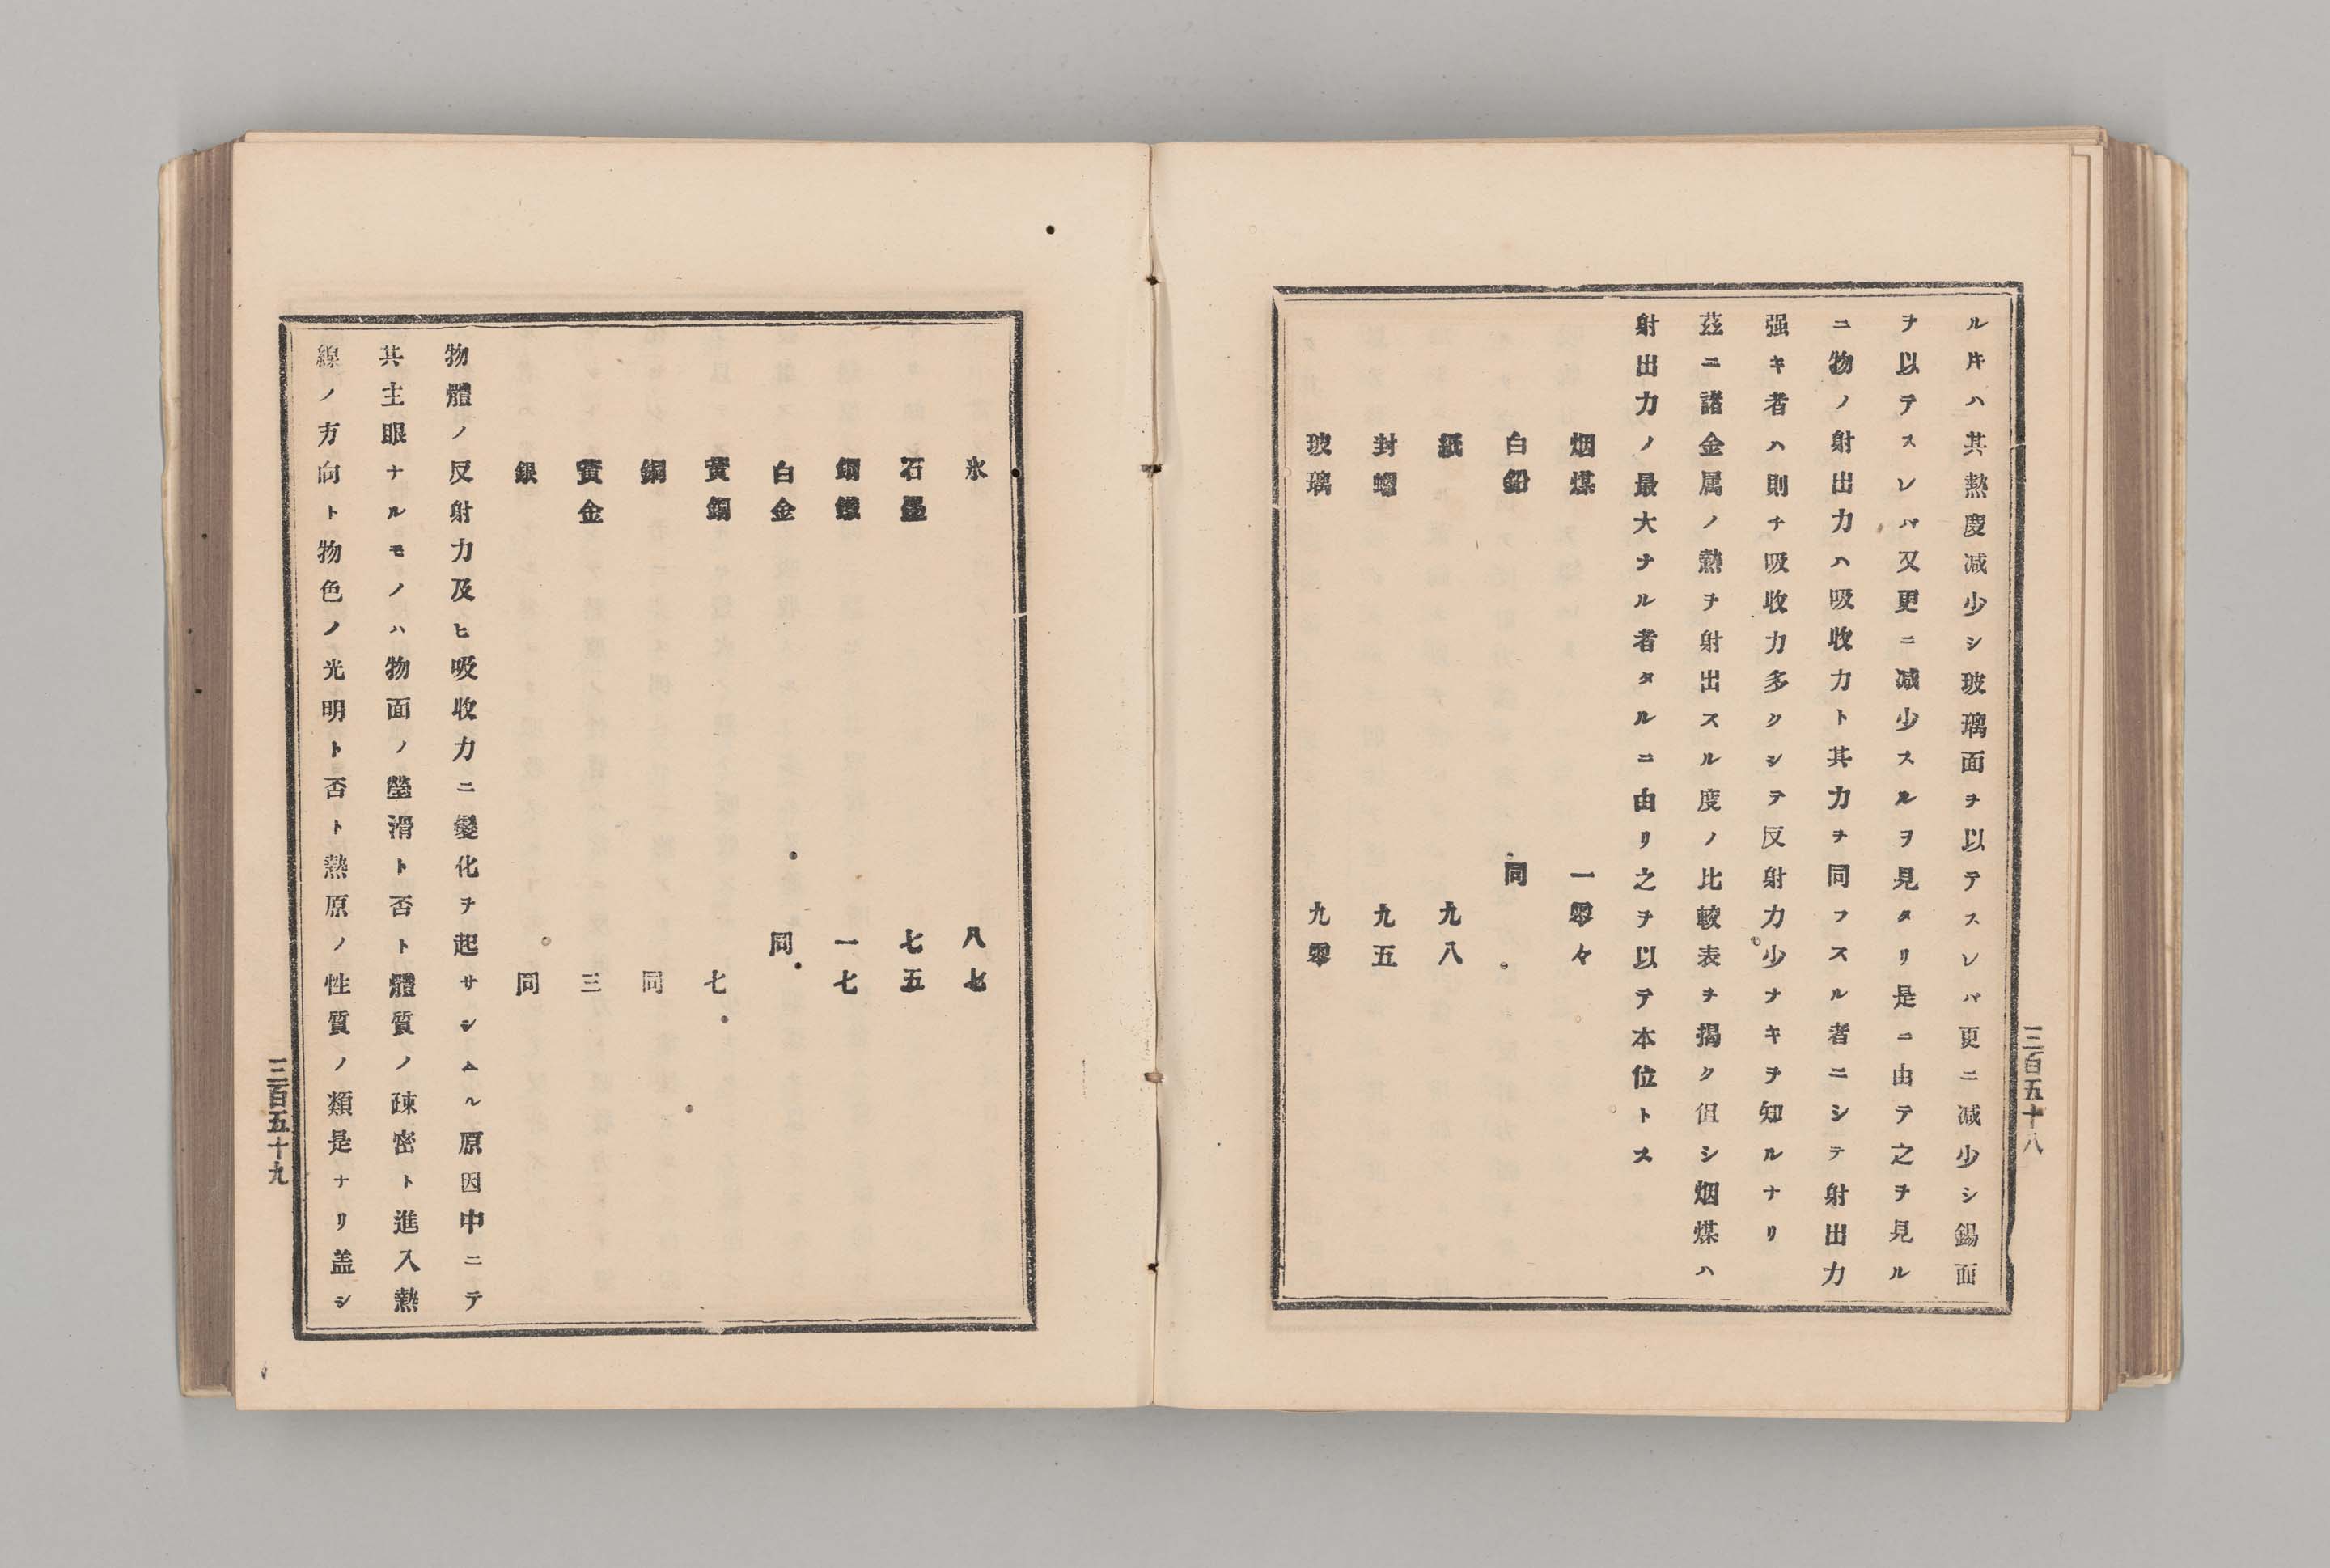 ル𪜈ハ其熱度減少シ玻璃面ヲ以テスレハ更ニ減少シ錫面
ヲ以テスレハ又更ニ減少スルヲ見タリ是ニ由テ之ヲ見ル
ニ物ノ射出力ハ吸收力ト其力ヲ同フスル者ニシテ射出力
强キ者ハ則チ吸收力多クシテ反射力少ナキヲ知ルナリ
茲ニ諸金属ノ熱ヲ射出スル度ノ比較表ヲ揭ク但シ烟煤ハ
射出力ノ最大ナル者タルニ由リ之ヲ以テ本位トス
烟煤 一零々
白鉛 同
紙 九八
封蠟 九五
玻璃 九零
三百五十八
氷 八七
石墨 七五
鋼鐵 一七
白金 同
黃銅 七
銅 同
黃金 三
銀 同
物體ノ反射力及ヒ吸收力ニ變化ヲ起サシムル原因中ニテ
其主眼ナルモノハ物面ノ瑩滑ト否ト體質ノ疎密ト進入熱
線ノ方向ト物色ノ光明ト否ト熱原ノ性質ノ類是ナリ盖シ
三百五十九